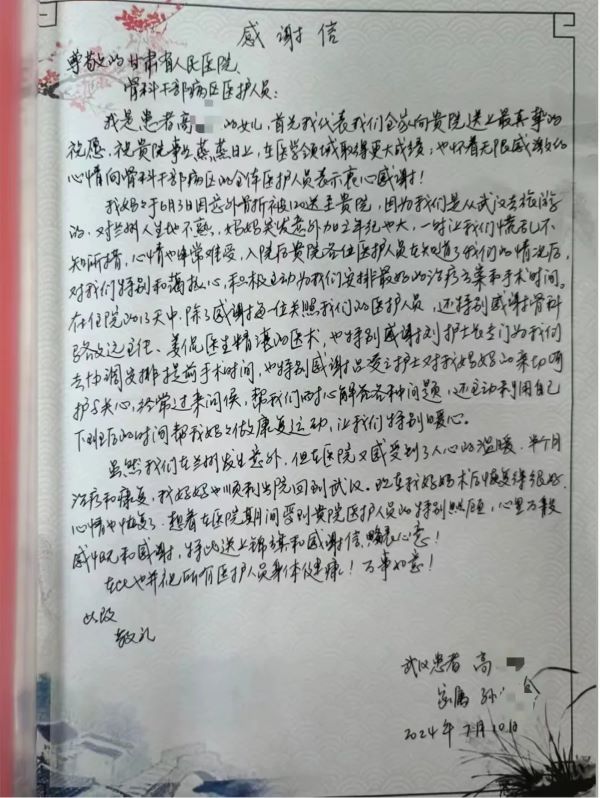 感谢信
尊敬的甘肃省人民医院
骨科干部病区医护人员：
我是患者高 的女儿，首先我代表我们全家向贵院送上最真挚的
祝愿，祝贵院事业蒸蒸日上，在医学领域取得更大成绩；也怀着无限感激的
心情向骨科干部病区的全体医护人员表示衷心感谢！
我妈妈于6月3日因意外骨折被120送至贵院，因为我们是从武汉去旅游
的，对兰州人生地不熟，妈妈突发意外加上年纪也大，一时让我们慌乱不
知所措，心情也非常难受，入院后贵院各位医护人员在知道了我们的情况后，
对我们特别和蔼热心，积极主动为我们安排最好的治疗方案和手术时间。
在住院的13天中，除了感谢每一位关照我们的医护人员，还特别感谢骨科
路 远主任、姜侃医生精湛的医术，也特别感谢刘护士长专门为我们
去协调安排提前手术时间，也特别感谢吕雯护士对我妈妈的亲切呵
护与关心，经常过来问候，帮我们耐心解答各种问题，还主动利用自己
下班后的时间帮我妈妈做康复运动，让我们特别暖心。
虽然我们在兰州发生意外，但在医院又感受到了人心的温暖，半个月
治疗和康复，我妈妈也顺利出院回到武汉。现在我妈妈术后恢复得很好，
心情也恢复了，想着在医院期间受到贵院医护人员的特别照顾，心里万般
感慨和感谢，特此送上锦旗和感谢信，略表心意！
在此也并祝所有医护人员身体健康！万事如意！
此致
敬礼
武汉患者 高
家属 孙
2024年7月10日